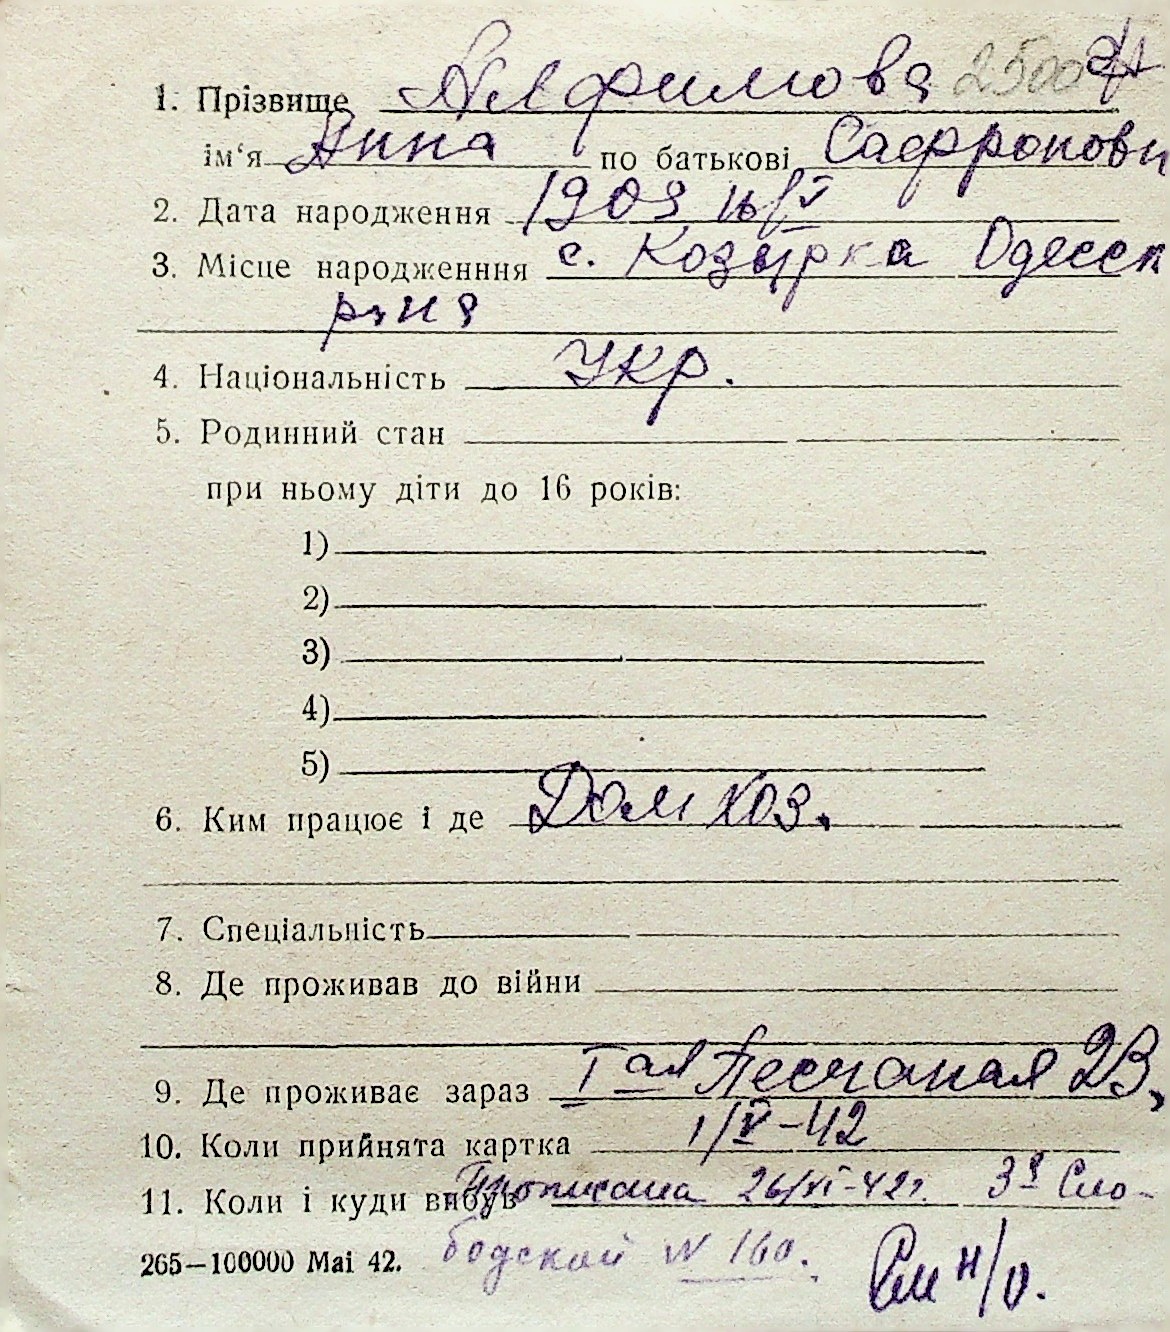 1. Прізвище Алфимова 2500
ім‘я Анна по батькові Сафроновн
2. Дата народження 1909 16/V
3. Місце народженння с. Козырка Одесск
р-на
4. Національність Укр.
5. Родинний стан
при ньому діти до 16 років:
1)
2)
3)
4)
5)
6. Ким працює і де Дом хоз.
7. Спеціальність
8. Де проживав до війни
9. Де проживає зараз 1 ая Песчаная 23,
10. Коли прийнята картка 1/V-42
11. Коли і куди вибув Прописана 26/VI-42г. 3я Сло-
265—100000 Маі 42. бодской № 160.
См н/о.